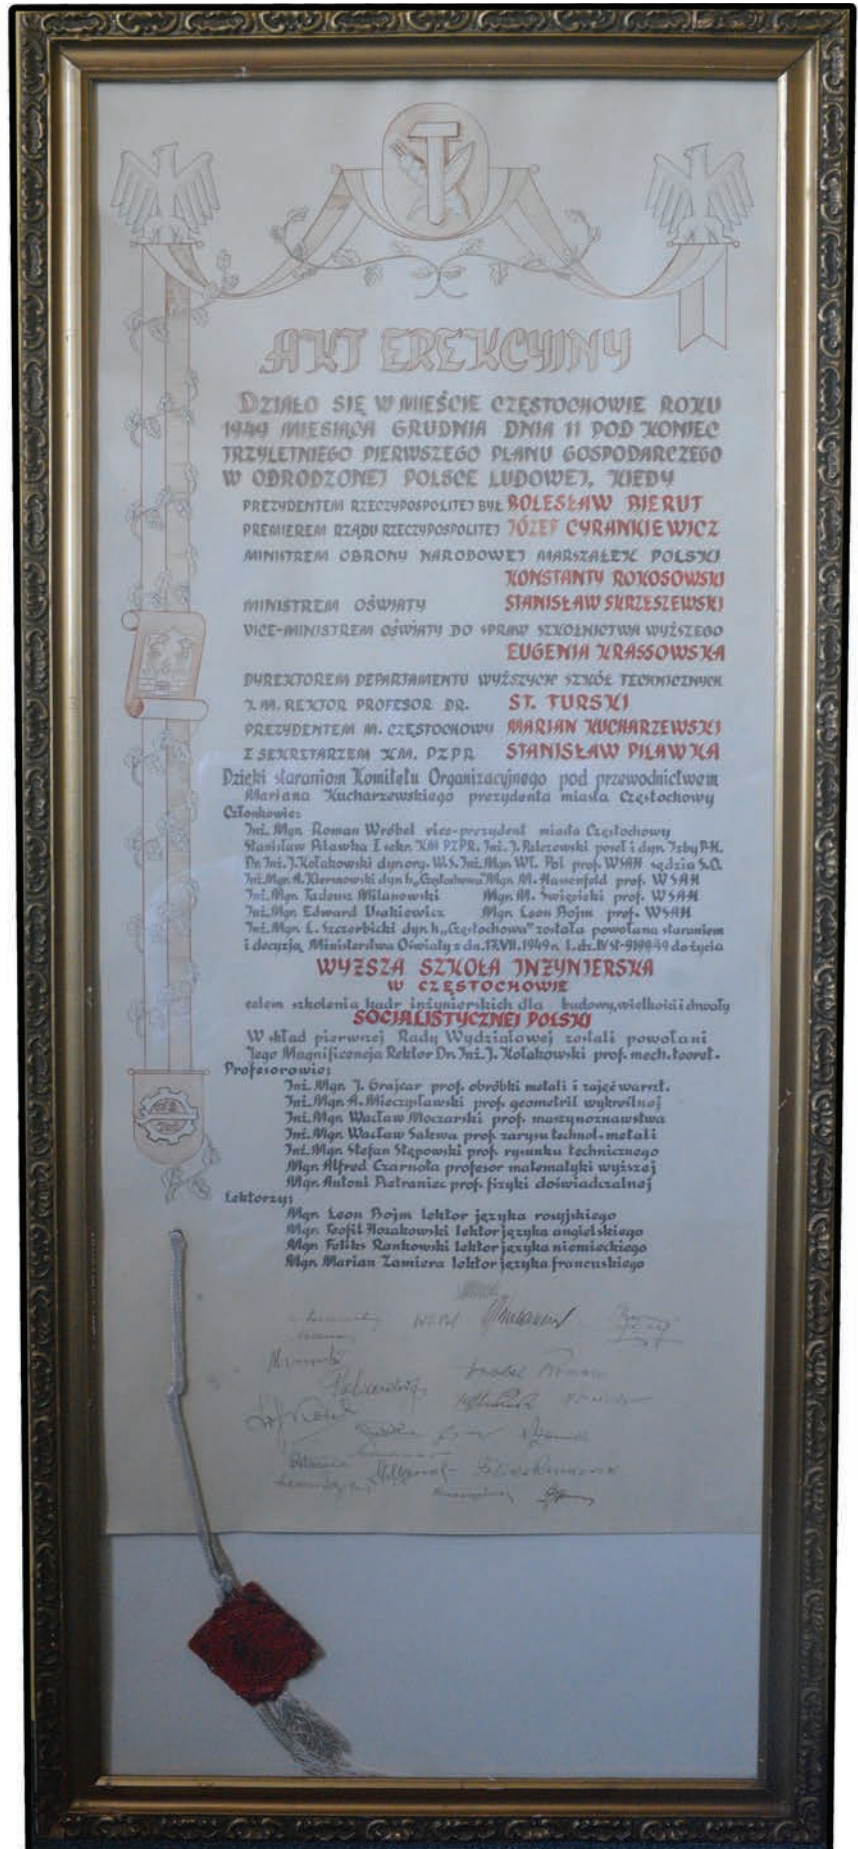 AKT EREKCYJNY
DZIAŁO SIĘ W MIEŚCIE CZĘSTOCHOWIE ROKU
1949 MIESIĄCA GRUDNIA DNIA 11 POD KONIEC
TRZYLETNIEGO PIERWSZEGO PLANU GOSPODARCZEGO
W ODRODZONEJ POLSCE LUDOWEJ, KIEDY
PREZYDENTEM RZECZYPOSPOLITEJ BYŁ BOLESŁAW BIERUT
PREMIEREM RZĄDU RZECZYPOSPOLITEJ JÓZEF CYRANKIEWICZ
MINISTREM OBRONY NARODOWEJ MARSZAŁEK POLSKI
KONSTANTY ROKOSOWSKI
MINISTREM OŚWIATY STANISŁAW SKRZESZEWSKI
VICE-MINISTREM OŚWIATY DO SPRAW SZKOLNICTWA WYŻSZEGO
EUGENIA KRASSOWSKA
DYREKTOREM DEPARTAMENTU WYŻSZYCH SZKÓŁ TECHNICZNYCH
J.M. REKTOR PROFESOR DR. ST. TURSKI
PREZYDENTEM M. CZĘSTOCHOWY MARIAN KUCHARZEWSKI
I SEKRETARZEM KM. PZPR STANISŁAW PILAWKA
Dzięki staraniom Komitetu Organizacyjnego pod przewodnictwem
Mariana Kucharzewskiego prezydenta miasta Częstochowy
Członkowie:
Inż. Mgr. Roman Wróbel vice-prezydent miasta Częstochowy
Stanisław Pilawka I sekr. KM PZPR. Inż. J. Palczewski poseł i dyn. Izby P.H.
Dr. Inż. J. Kołakowski dyn. org. W.S. Inż. Mgr. Wł. Pol prof. WSAH sędzia S.O.
Inż. Mgr. A. Kiernowski dyn h. „Częstochowa" Mgr. M. Hassenfeld prof. WSAH
Inż. Mgr. Tadeusz Milanowski Mgr. M. Święcicki prof. WSAH
Inż. Mgr. Edward Usakiewicz Mgr. Leon Bojm prof. WSAH
Inż. Mgr. L. Szczerbicki dyn. h. „Częstochowa" została powołana staraniem
i decyzją Ministerstwa Oświaty z dn. 17.VII.1949 r. L. dz. IV do życia
WYŻSZA SZKOŁA INŻYNIERSKA
W CZĘSTOCHOWIE
celem szkolenia kadr inżynierskich dla budowy, wielkości i chwały
SOCJALISTYCZNEJ POLSKI
W skład pierwszej Rady Wydziałowej zostali powołani
Jego Magnificencja Rektor Dr. Inż. J. Kołakowski prof. mech. teoret.
Profesorowie:
Inż. Mgr. J. Grajcar prof. obróbki metali i zajęć warszt.
Inż. Mgr. A. Mieczysławski prof. geometrii wykreślnej
Inż. Mgr. Wacław Moczarski prof. maszynoznawstwa
Inż. Mgr. Wacław Sakwa prof. zarysu technol. metali
Inż. Mgr. Stefan Stępowski prof. rysunku technicznego
Mgr. Alfred Czarnota profesor matematyki wyższej
Mgr. Antoni Pietraniec prof. fizyki doświadczalnej
Lektorzy:
Mgr. Leon Bojm lektor języka rosyjskiego
Mgr. Teofil Kozakowski lektor języka angielskiego
Mgr. Feliks Rankowski lektor języka niemieckiego
Mgr. Marian Zamiera lektor języka francuskiego